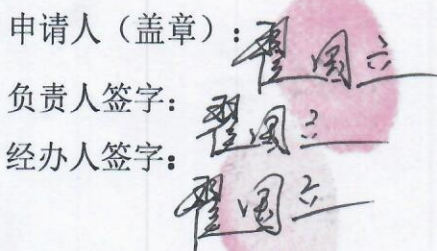 申请人（盖章）：翟国立
负责人签字：翟国立
经办人签字：
翟国立